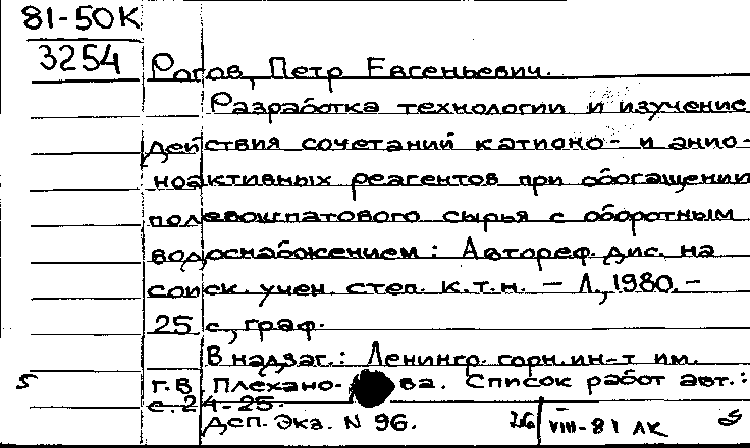 81-50К
3254
Рогов, Петр Евгеньевич.
Разработка технологии и изучение
действия сочетаний катионо- и анио-
ноактивных реагентов при обогащении
полевошпатового сырья с оборотным
водоснабжением: Автореф. дис. на
соиск. учен. степ. к.т.н. - Л., 1980. -
25 с., граф.
В надзаг.: Ленингр. горн. ин-т им.
5 Г.В. Плехано-ва. Список работ авт.:
с. 24-25.
ДСП. Экз. N 96.
VIII-81 ЛК